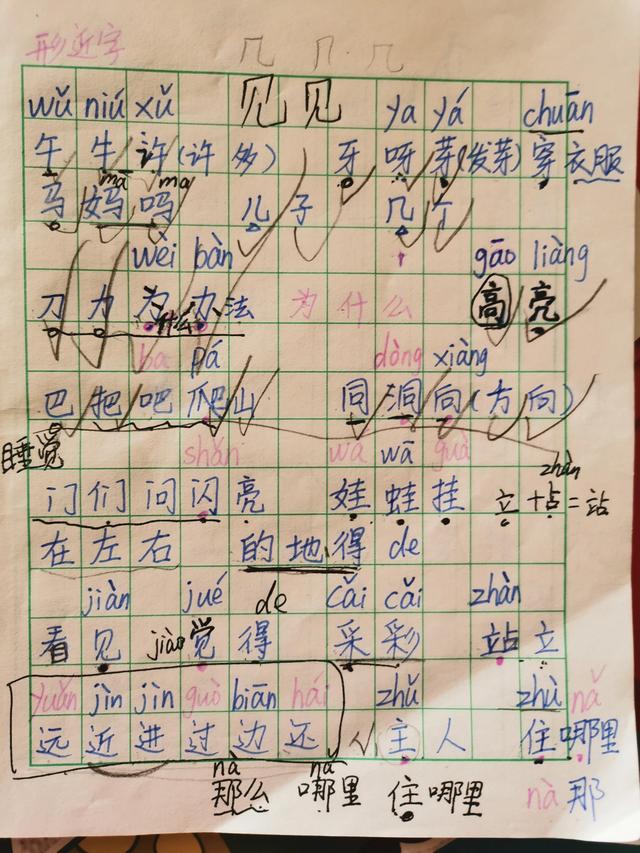 形近字 几 几 几
wǔ niú xǔ 见 见 ya yá chuān
午 牛 许(许多) 牙 呀 芽(发芽) 穿衣服
ma ma
马 妈 吗 儿子 几个
wèi bàn gāo liàng
刀 力 为 办法 为什么 高 亮
什么
ba pá dòng xiàng
巴 把 吧 爬山 同 洞 向(方向)
睡觉 shǎn wa wā guà zhàn
门 们 问 闪亮 娃 蛙 挂 立+占=站
在 左 右 的 地 得 de
jiàn jué de cǎi cǎi zhàn
看见 jiào 觉得 采 彩 站立
yuǎn jìn jìn guò biān hái zhǔ zhù nǎ
远 近 进 过 边 还 √ 主人 住哪里
nà nǎ
那么 哪里 住哪里 nà 那